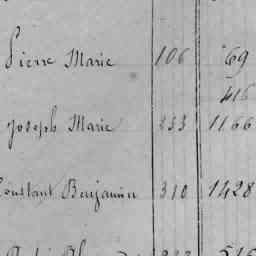 Pierre Marie 106 69
416
Joseph Marie 233 1166
Constant Benjamin 310 1428